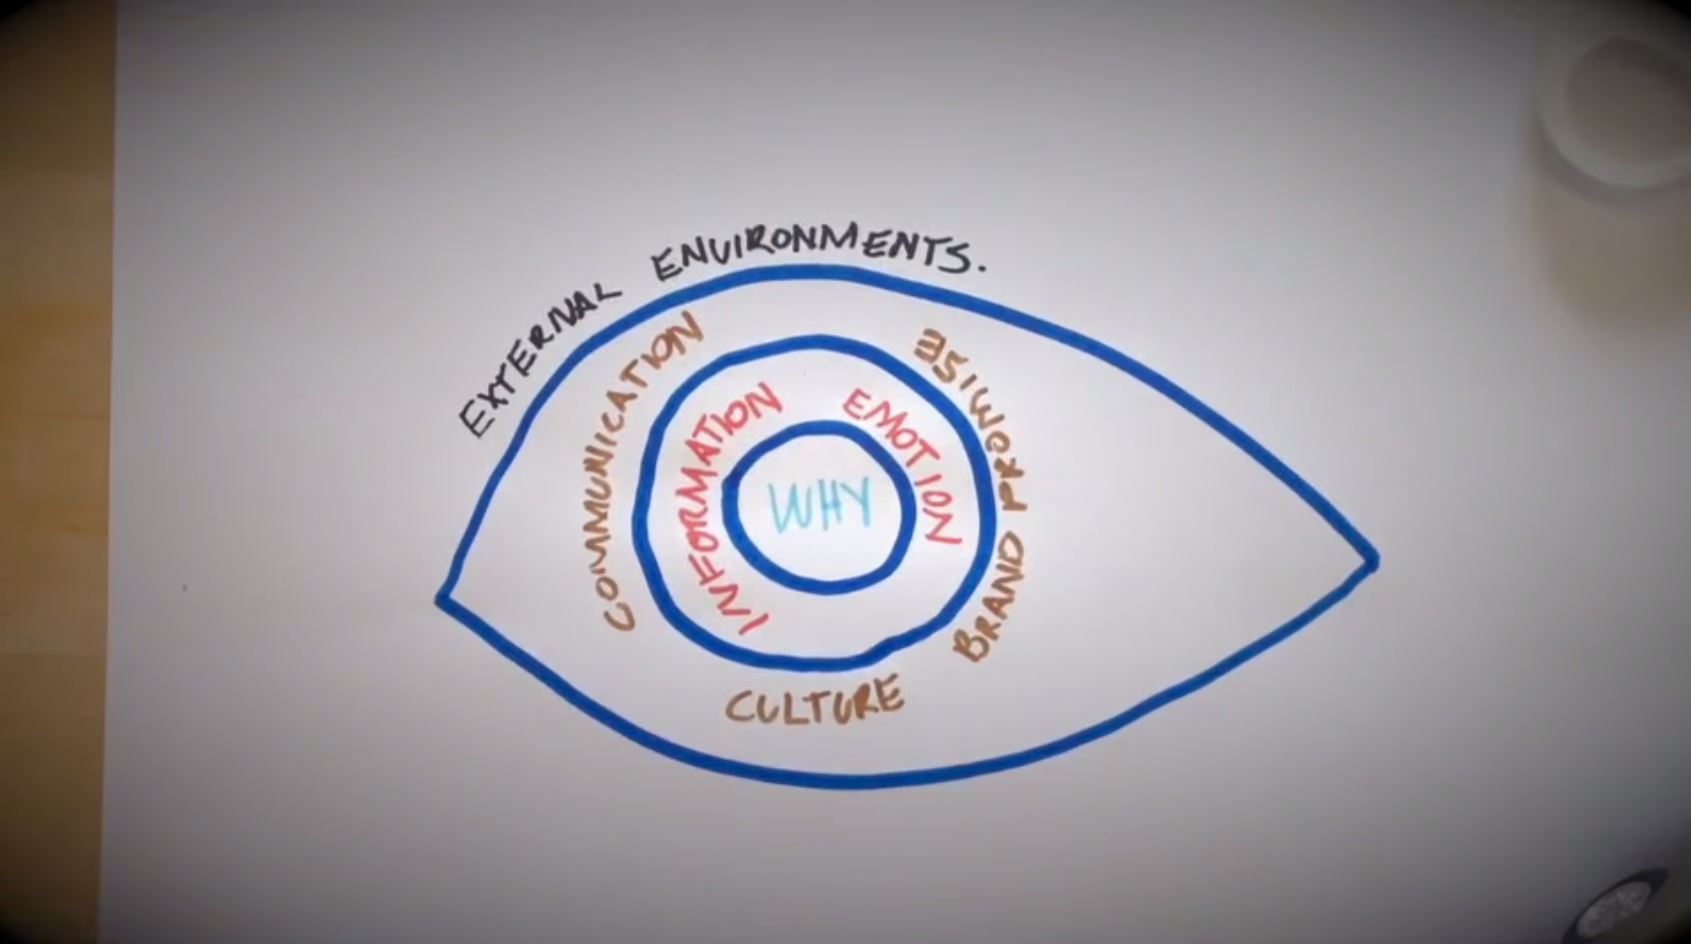 EXTERNAL ENVIRONMENTS.
COMMUNICATION
BRAND PROMISE
INFORMATION
EMOTION
WHY
CULTURE